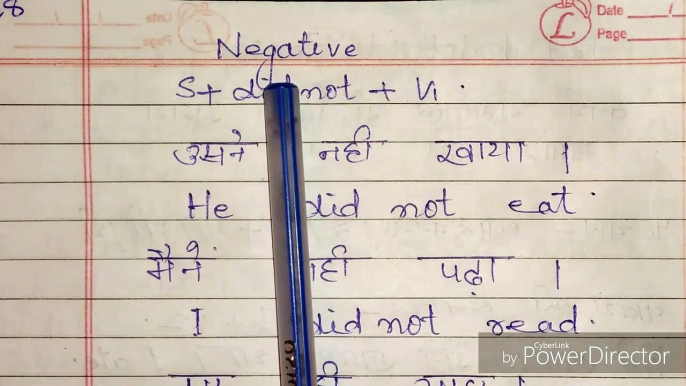 28
Date
Page
Negative
S+ did not + V1 .
उसने नही खाया ।
He did not eat .
मैने नही पढ़ा ।
I did not read .
CyberLink
by PowerDirector